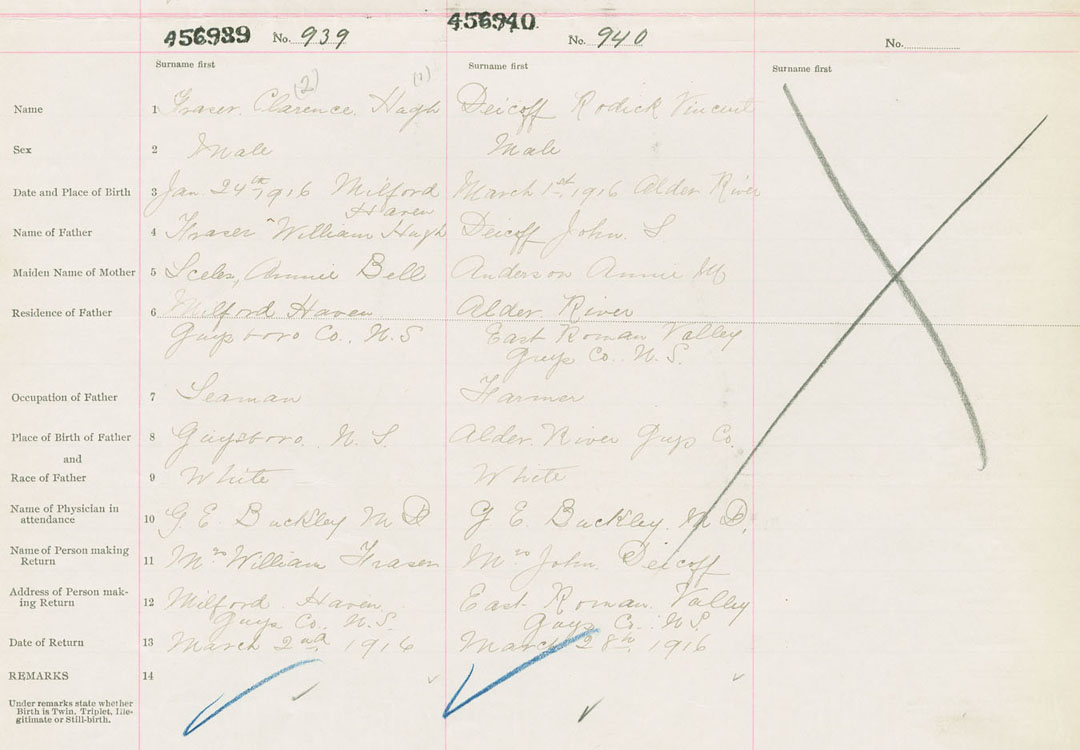 456939 No. 939
456940 No. 940
No.
Surname first
Surname first
Surname first
(2) (1)
Name 1 Fraser, Clarence, Hugh
Deicoff Rodick Vincent
Sex 2 Male
Male
Date and Place of Birth 3 Jan. 24th, 1916 Milford
Haven
March 1st, 1916 Alder River
Name of Father 4 Fraser William Hugh
Deicoff John. S.
Maiden Name of Mother 5 Annie Bell
Anderson Annie M
Residence of Father 6 Milford Haven
Guysboro Co., N.S
Alder. River
East Roman Valley
Guys Co., N.S.
Occupation of Father 7 Seaman
Farmer
Place of Birth of Father 8 Guysboro. N.S.
Alder. River Guys Co.
and
Race of Father 9 White
White
Name of Physician in
attendance 10 G E. Buckley M D
G E. Buckley. M D.
Name of Person making
Return 11 Mrs William Fraser
Mrs John. Deicoff
Address of Person mak-
ing Return 12 Milford. Haven
Guys Co., N.S.
East. Roman. Valley
Guys Co., N.S.
Date of Return 13 March 2nd 1916
March 28th. 1916
REMARKS 14
Under remarks state whether
Birth is Twin, Triplet, Ille-
gitimate or Still-birth.